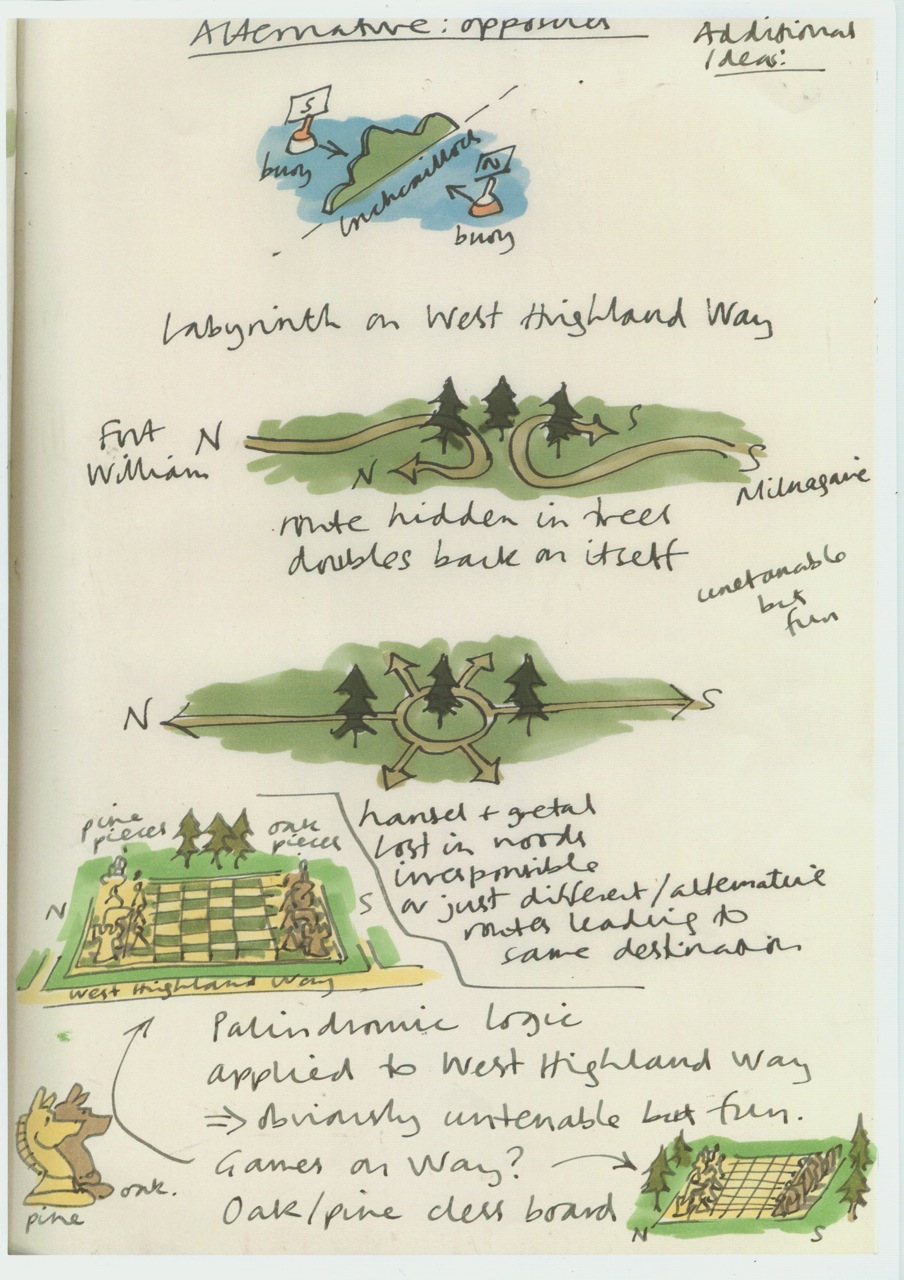 Alternative: opposites
Additional
Ideas:
S
buoy
Inchcailloch
N
buoy
Labyrinth on West Highland Way
Fort
William
N
N
S
S
Milnagavie
route hidden in trees
doubles back on itself
unetanable
but
fun
N
S
hansel + gretal
lost in woods
irresponsible
or just different/alternative
routes leading to
same destination
pine
pieces
oak
pieces
N
S
West Highland Way
Palindromic logic
applied to West Highland Way
⇒ obviously untenable but fun.
Games on Way?
Oak/pine chess board
oak.
pine
N
S